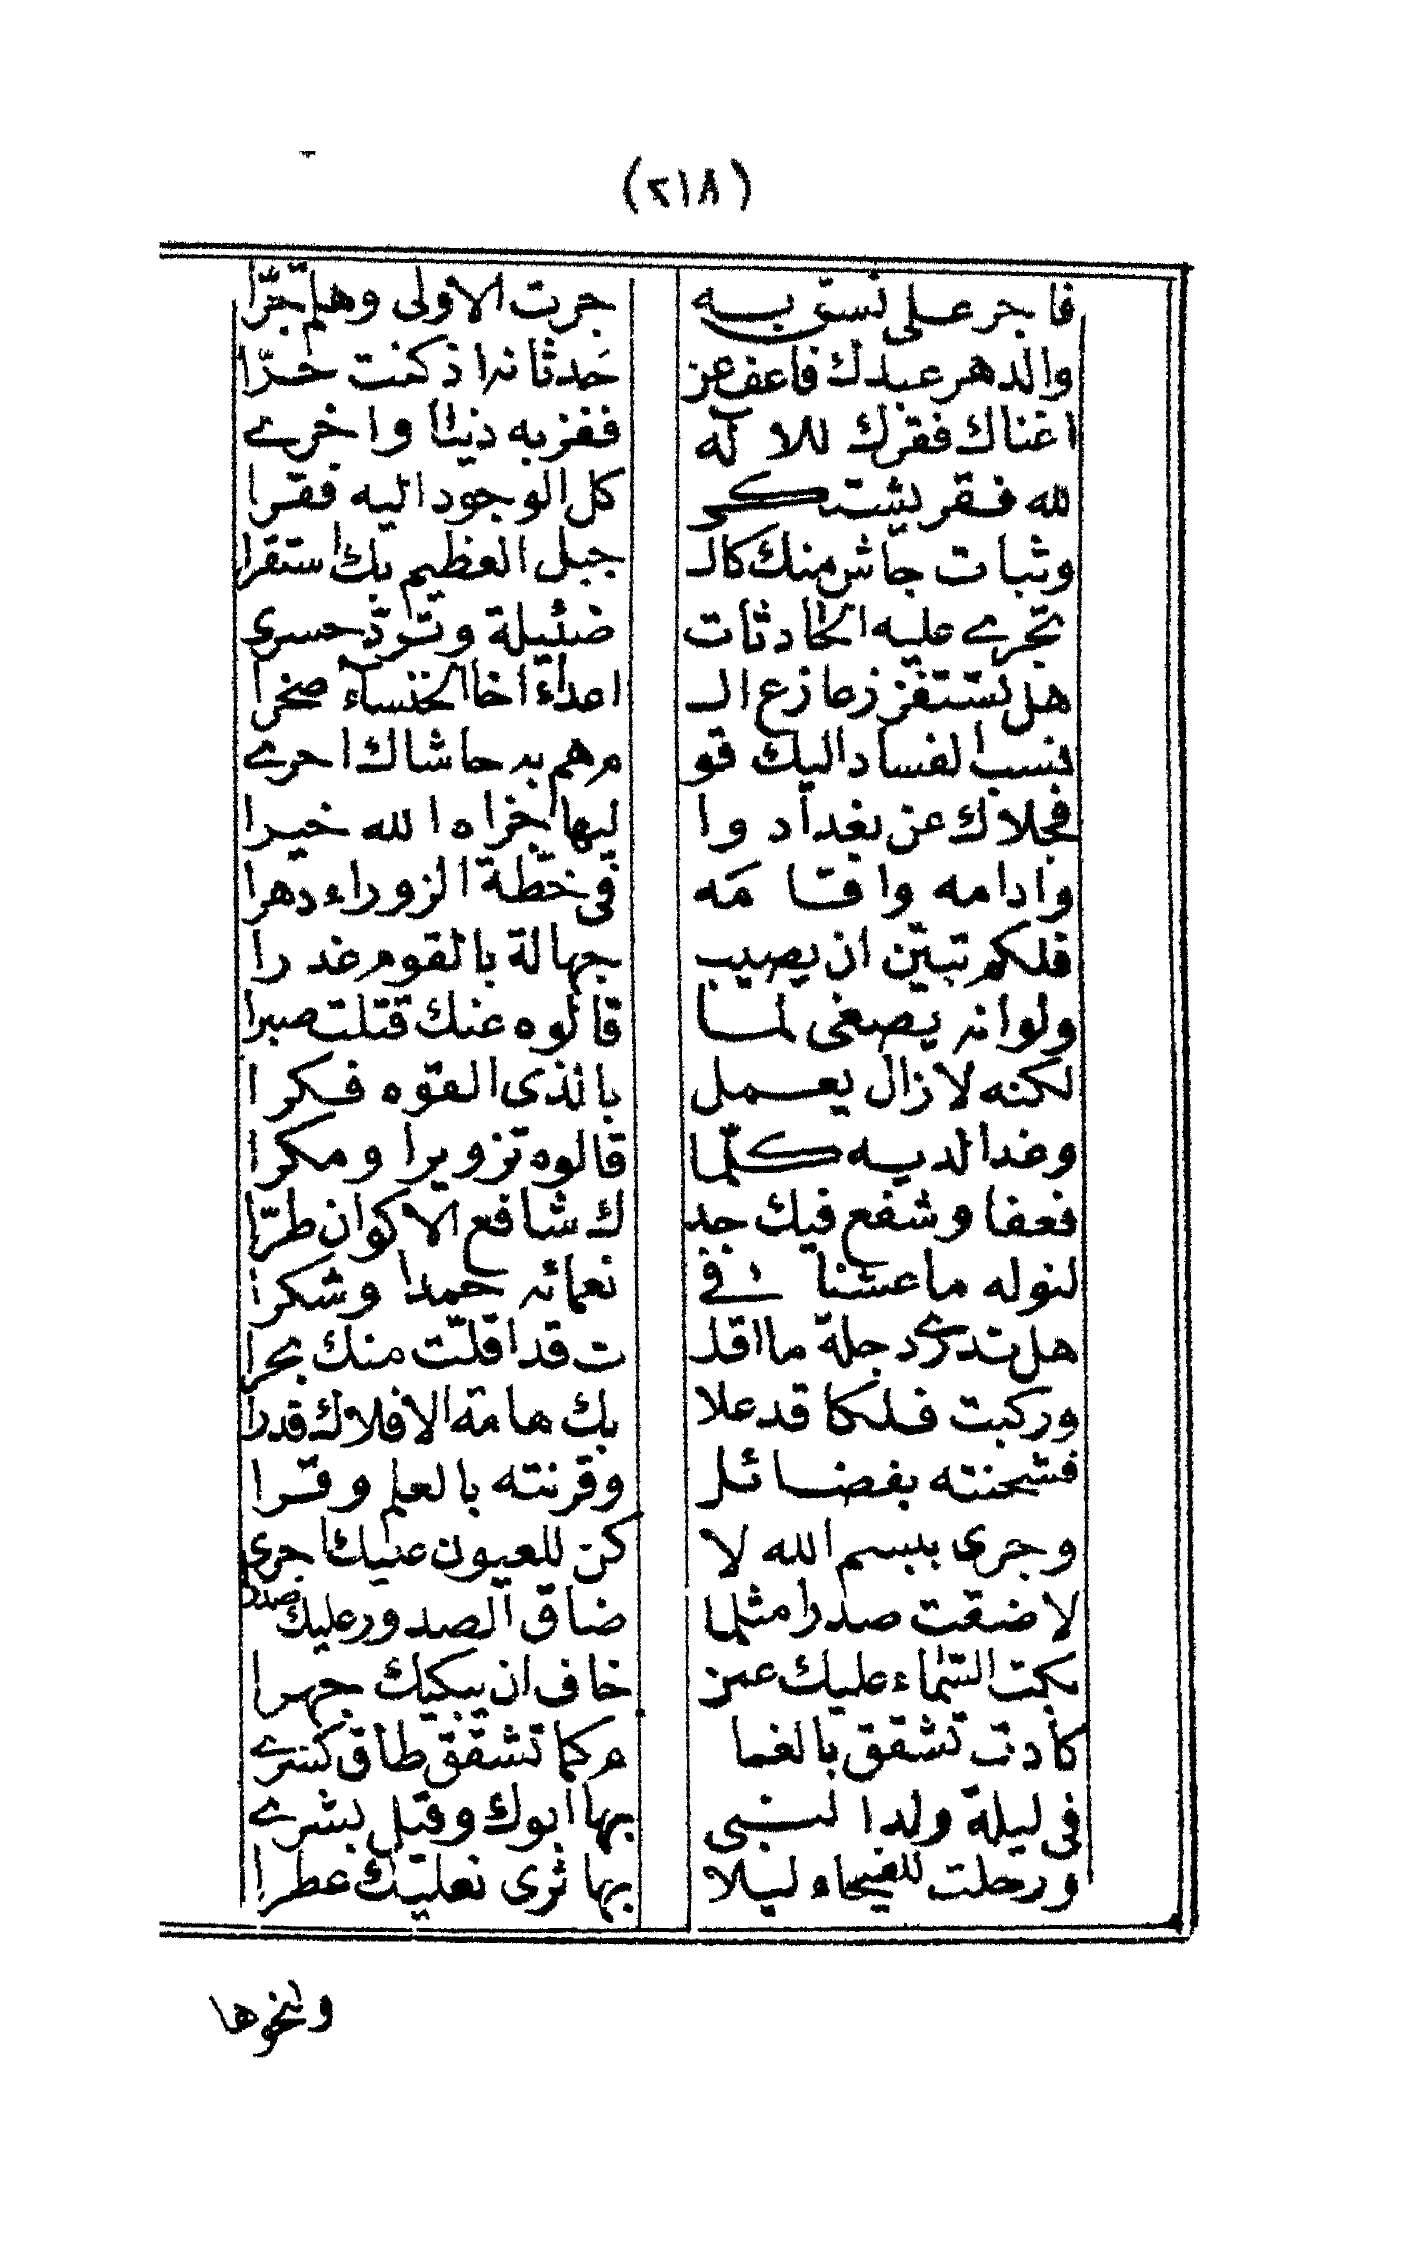 (٢١٨)
فاجر على نسق به جرت الاولى وهلم جرّا
والدهر عبدك فاعف عن حَدثانه اذ كنت حرّا
اغناك فقرك للاله ففز به دنيا واخرے
لله فقر يشتكى كل الوجود اليه فقرا
وثبات جاش منك كالـ جبل العظيم بك استقرا
تجرے عليه الحادثات ضئيلة وتردّ حسرى
هل تستفز زعازع الـ اعداء اخا الخنساء صخرا
نسب الفساد اليك قو م هم به حاشاك احرے
فجلاك عن بغداد وا ليها جزاه الله خيرا
وادامه واقامَه فى خطّة الزوراء دهرا
فلكم تبيّن ان يصيب جهالة بالقوم غدرا
ولوانه يصغى لما قالوه عنك قتلت صبرا
لكنه لازال يعمل بالذى القوه فكرا
وغدا لديه كلّما قالوه تزويرا ومكرا
فعفا وشفع فيك جد ك شافع الاكوان طرّا
لنوله ما عشنا فى نعمائه حمدا وشكرا
هل تدرے دجلة ما اقلـ ت قد اقلّت منك بحرا
وركبت فلكا قد علا بك هامة الافلاك قدرا
فشحنته بفضائل وقرنته بالعلم وقرا
وجرى ببسم الله لا كن للعيون عليك اجرى
لا ضقت صدرا مثلما ضاق الصدور عليك صدرا
بكت السماء عليك عمن خاف ان يبكيك جهرا
كادت تشقق بالغما م كما تشقق طاق كسرے
فى ليلة ولدا لنبى بها ابوك وقبل بشرے
ورحلت للفيحاء ليلا بها ثرى نعليك عطرا
ولنحوها